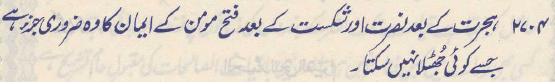 ۲۷۰۴ ہجرت کے بعد نصرت اور شکست کے بعد فتح مومن کے ایمان کا وہ ضروری جزو ہے
جسے کوئی جُھٹلا نہیں سکتا۔